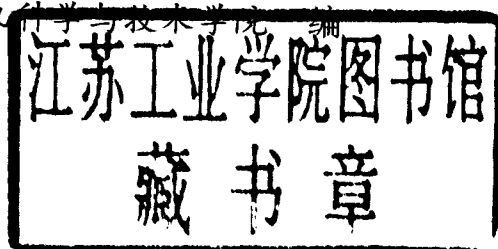 科学与技术学院 编
江苏工业学院图书馆
藏书章